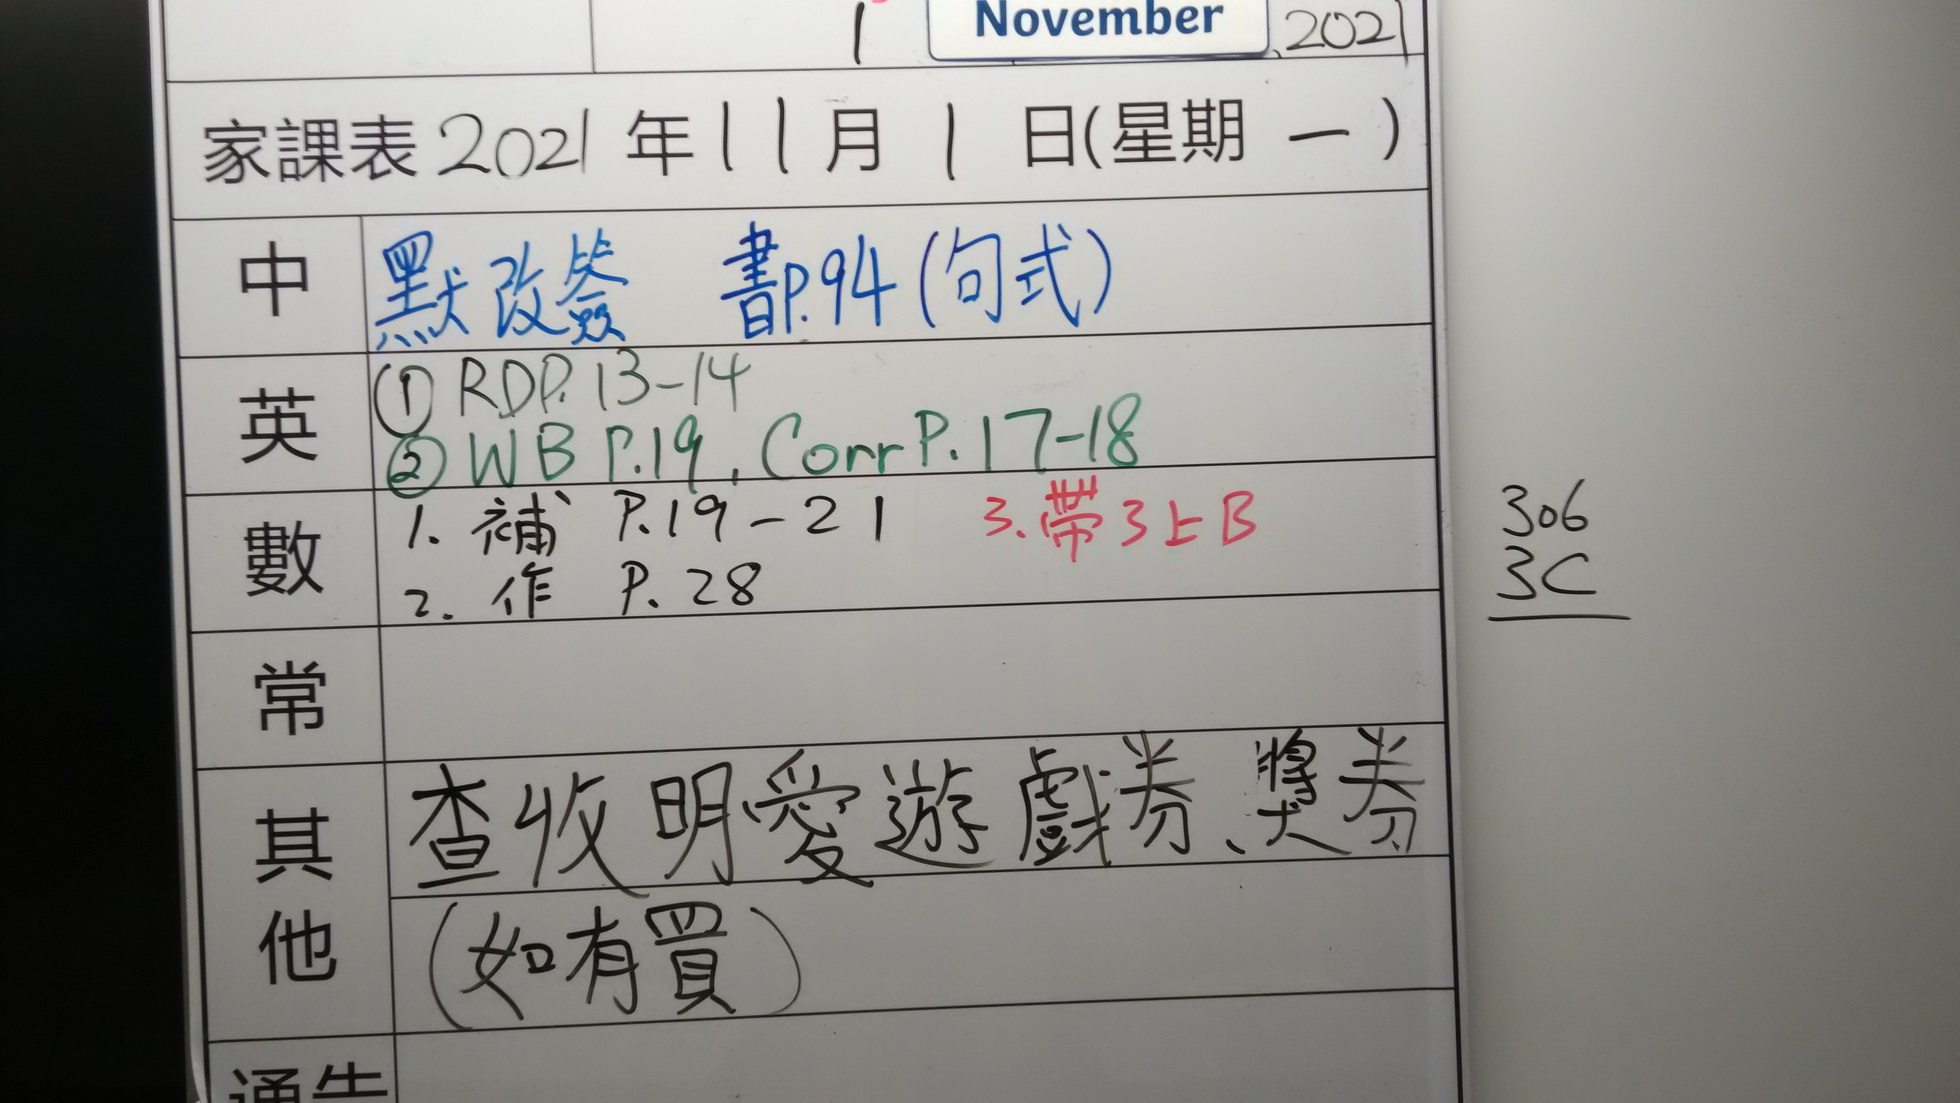 1 November, 2021
家課表 2021 年 11 月 1 日(星期 一 )
中 默改簽 書P.94 (句式)
英 ① RDP. 13-14
② WB P.19, Corr P. 17-18
數 1. 補 P.19-21 3. 帶 3上B
2. 作 P. 28
306
3C
常
其他 查收明愛遊戲券、獎券
(如有買)
通告